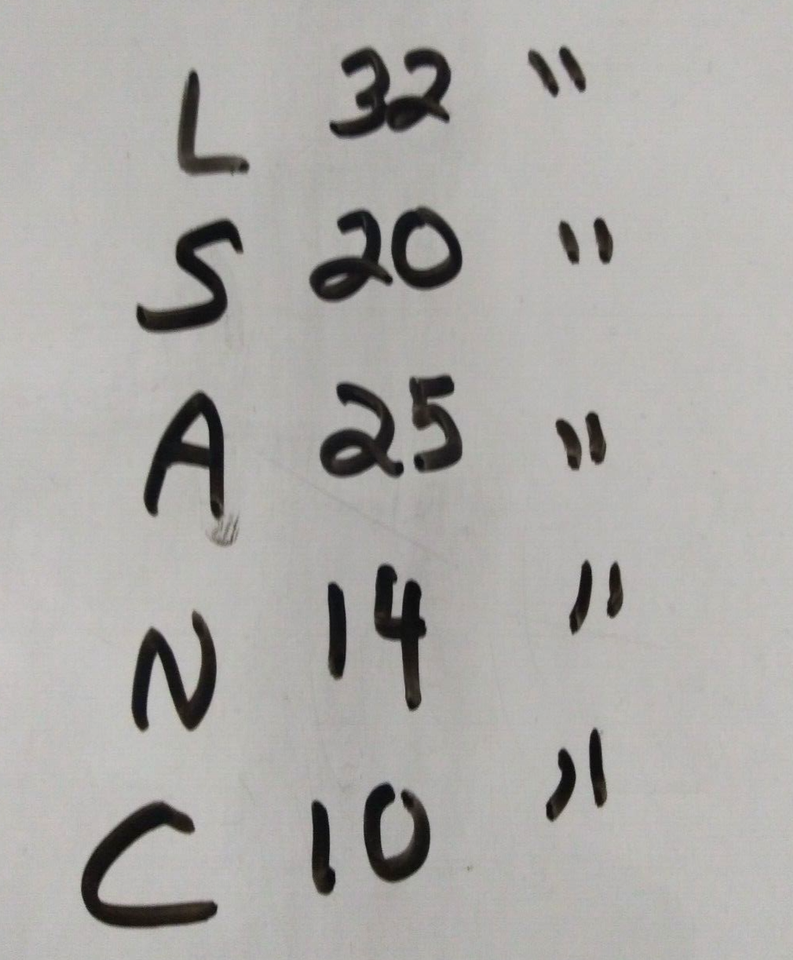 L 32 "
S 20 "
A 25 "
N 14 "
C 10 "